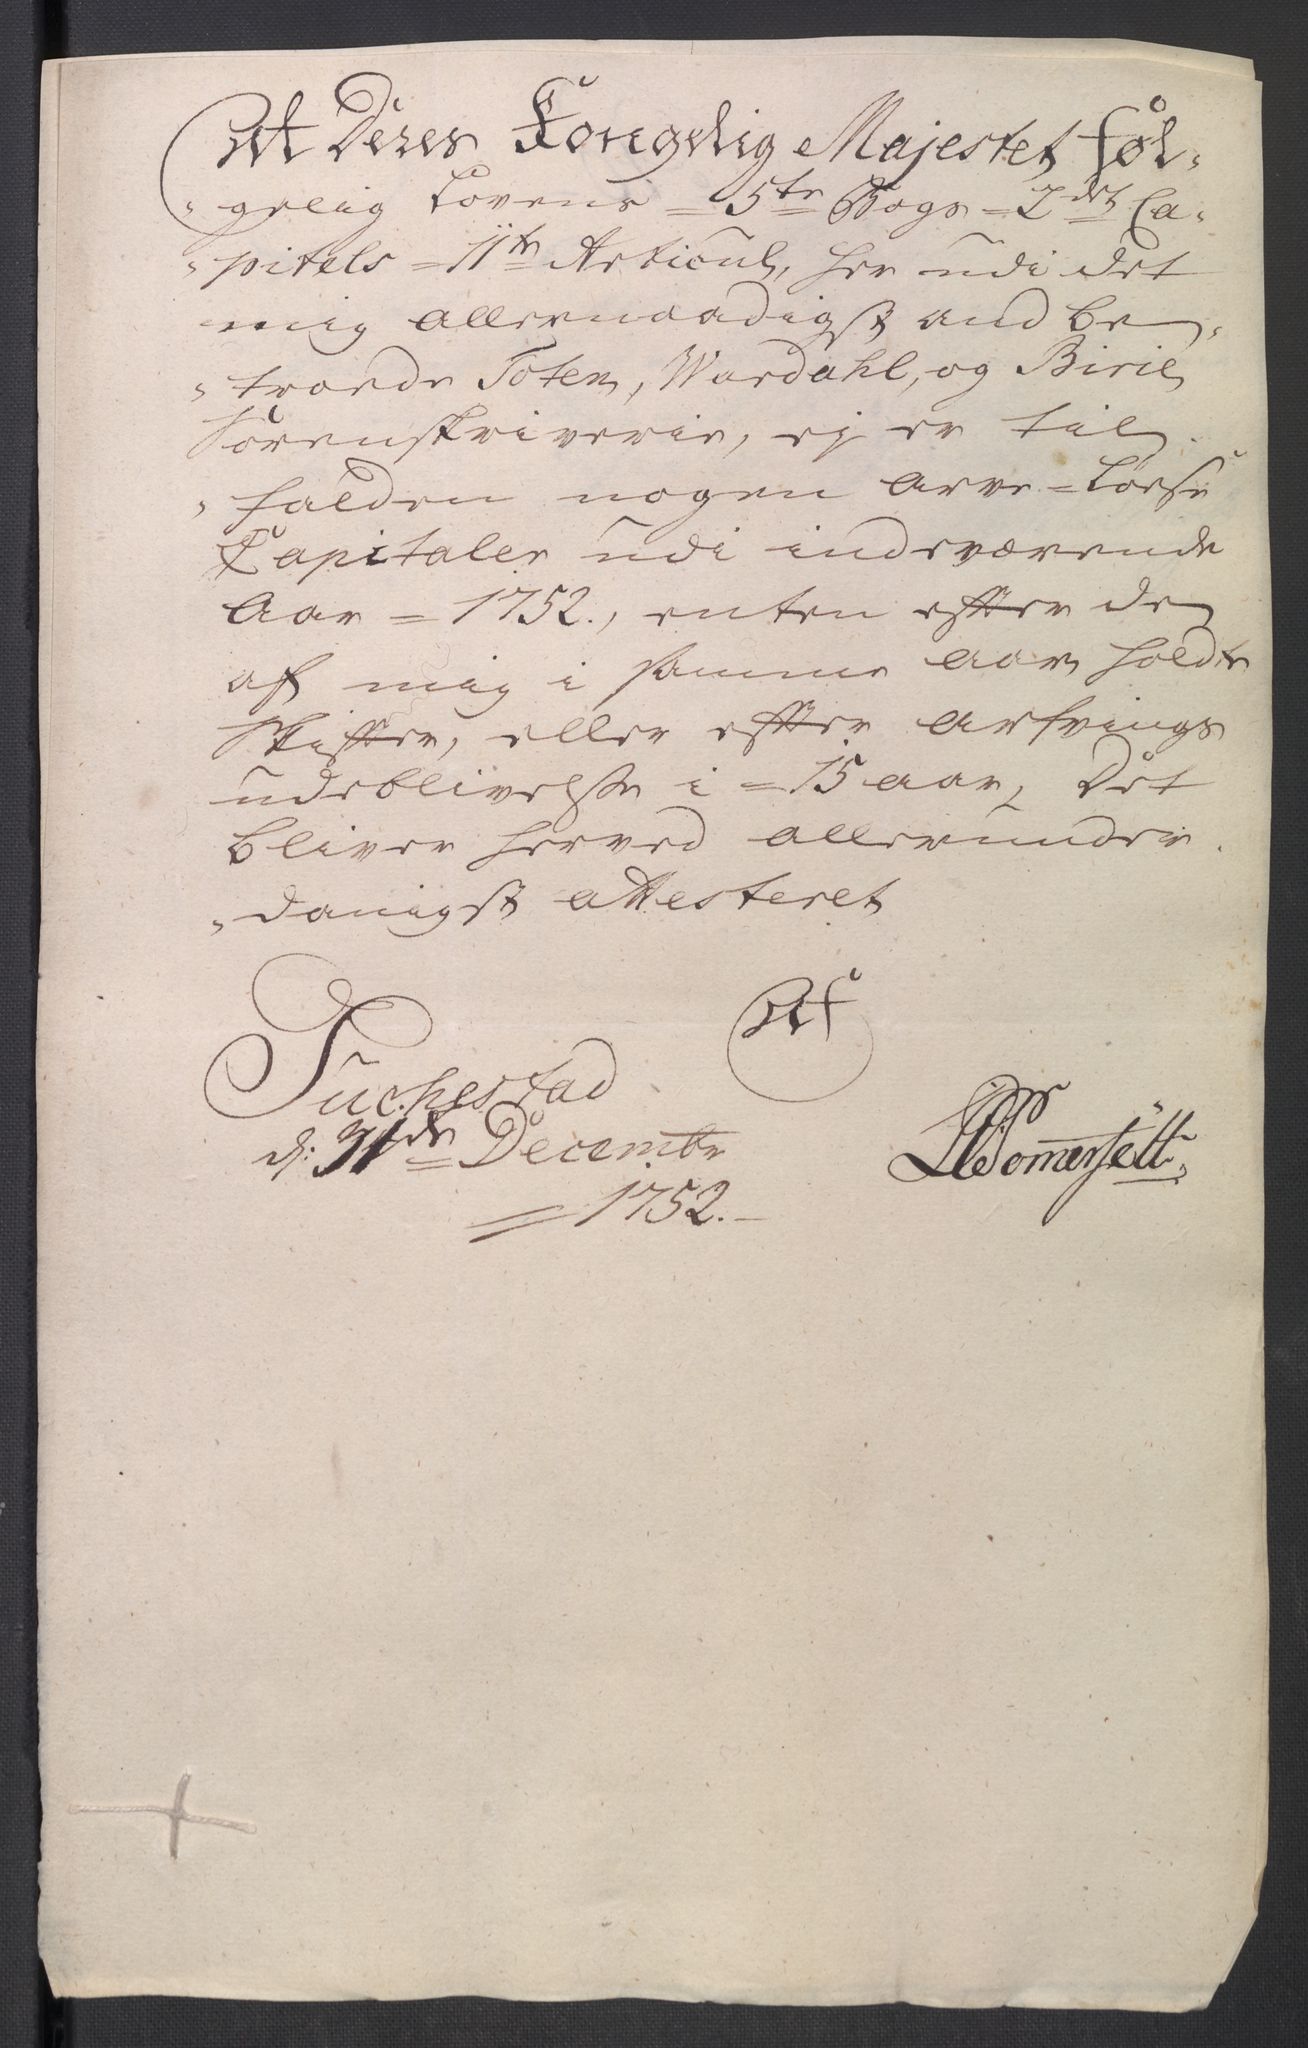 At Deres Kongelig Majestet føl-
-gelig Lovens = 5te Bogs = 2det Ca-
-pitels = 11te Articul, her udi det
mig allernaadigst and be-
-troede Toten, Wardahl, og Birie
Sorenskriverie, ej er til
-falden nogen arve-Løese
Capitaler udi indeværende
Aar = 1752., enten effter de
af mig i samme aar holdte
Skiffter, eller effter arfvings
udeblivelsse i = 15 aar, Det
bliver herved allerunder
-danigst attesteret
Af
Suchestad
d: 31de Decembr
= 1752.-
Somersëtt